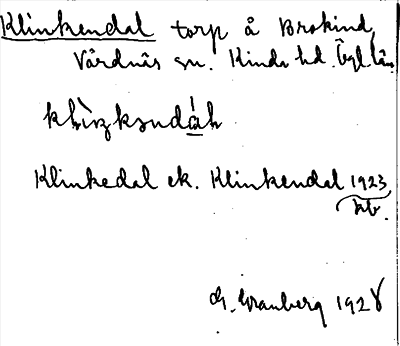 Klinkendal torp å Brokind,
Vårdnäs sn. Kinda hd. Ögl. län.
Klinkedal ek. Klinkendal 1923
kb.
G. Granberg 1928